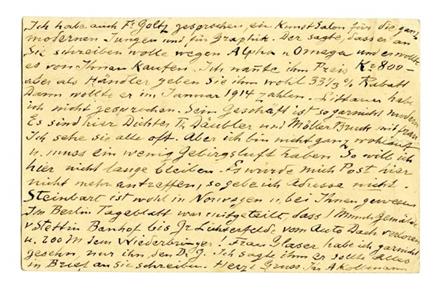 Ich habe auch Fr Goltz gesprochen ein Kunst Salon für die ganz
modernen Jungen und für Graphik. Der sagte, dass er an
Sie schreiben wolle wegen Alpha u Omega und er wolle
es von Ihnen kaufen. Ich nannte ihm Preis Kr 800-
aber als Händler geben Sie ihm wohl 33 1/3 % Rabatt
Dann wollte er im Januar 1914 zahlen. Littauer habe
ich nicht gesprochen. Sein Geschäft ist so garnicht modern
Es sind hier Dichter T. Däubler und Möller Bruck mit Frau
Ich sehe sie alle oft. Aber ich bin nicht ganz wohlauf
u. muss ein wenig Gebirgsluft haben. So will ich
hier nicht lange bleiben. Es würde mich Post hier
nicht mehr antreffen, so gebe ich Adresse nicht
Steinbart ist wohl in Norwegen u. bei Ihnen gewesen
Im Berlin Tageblatt war mitgeteilt, dass 1 Munch Gemälde
v Stettin Banhof bis Gr Lichterfelde vom Auto Dach verloren
u. 200 M dem Wiederbringer! Frau Glaser habe ich garnicht
gesehn nur ihn den D. G. Ich sagte ihm er sollte Alles
in Brief an Sie schreiben. Herzl Gruss Ihr AKollmann